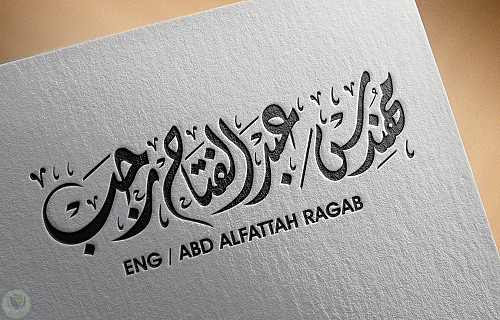 مهندس / عبد الفتاح رجب
ENG / ABD ALFATTAH RAGAB